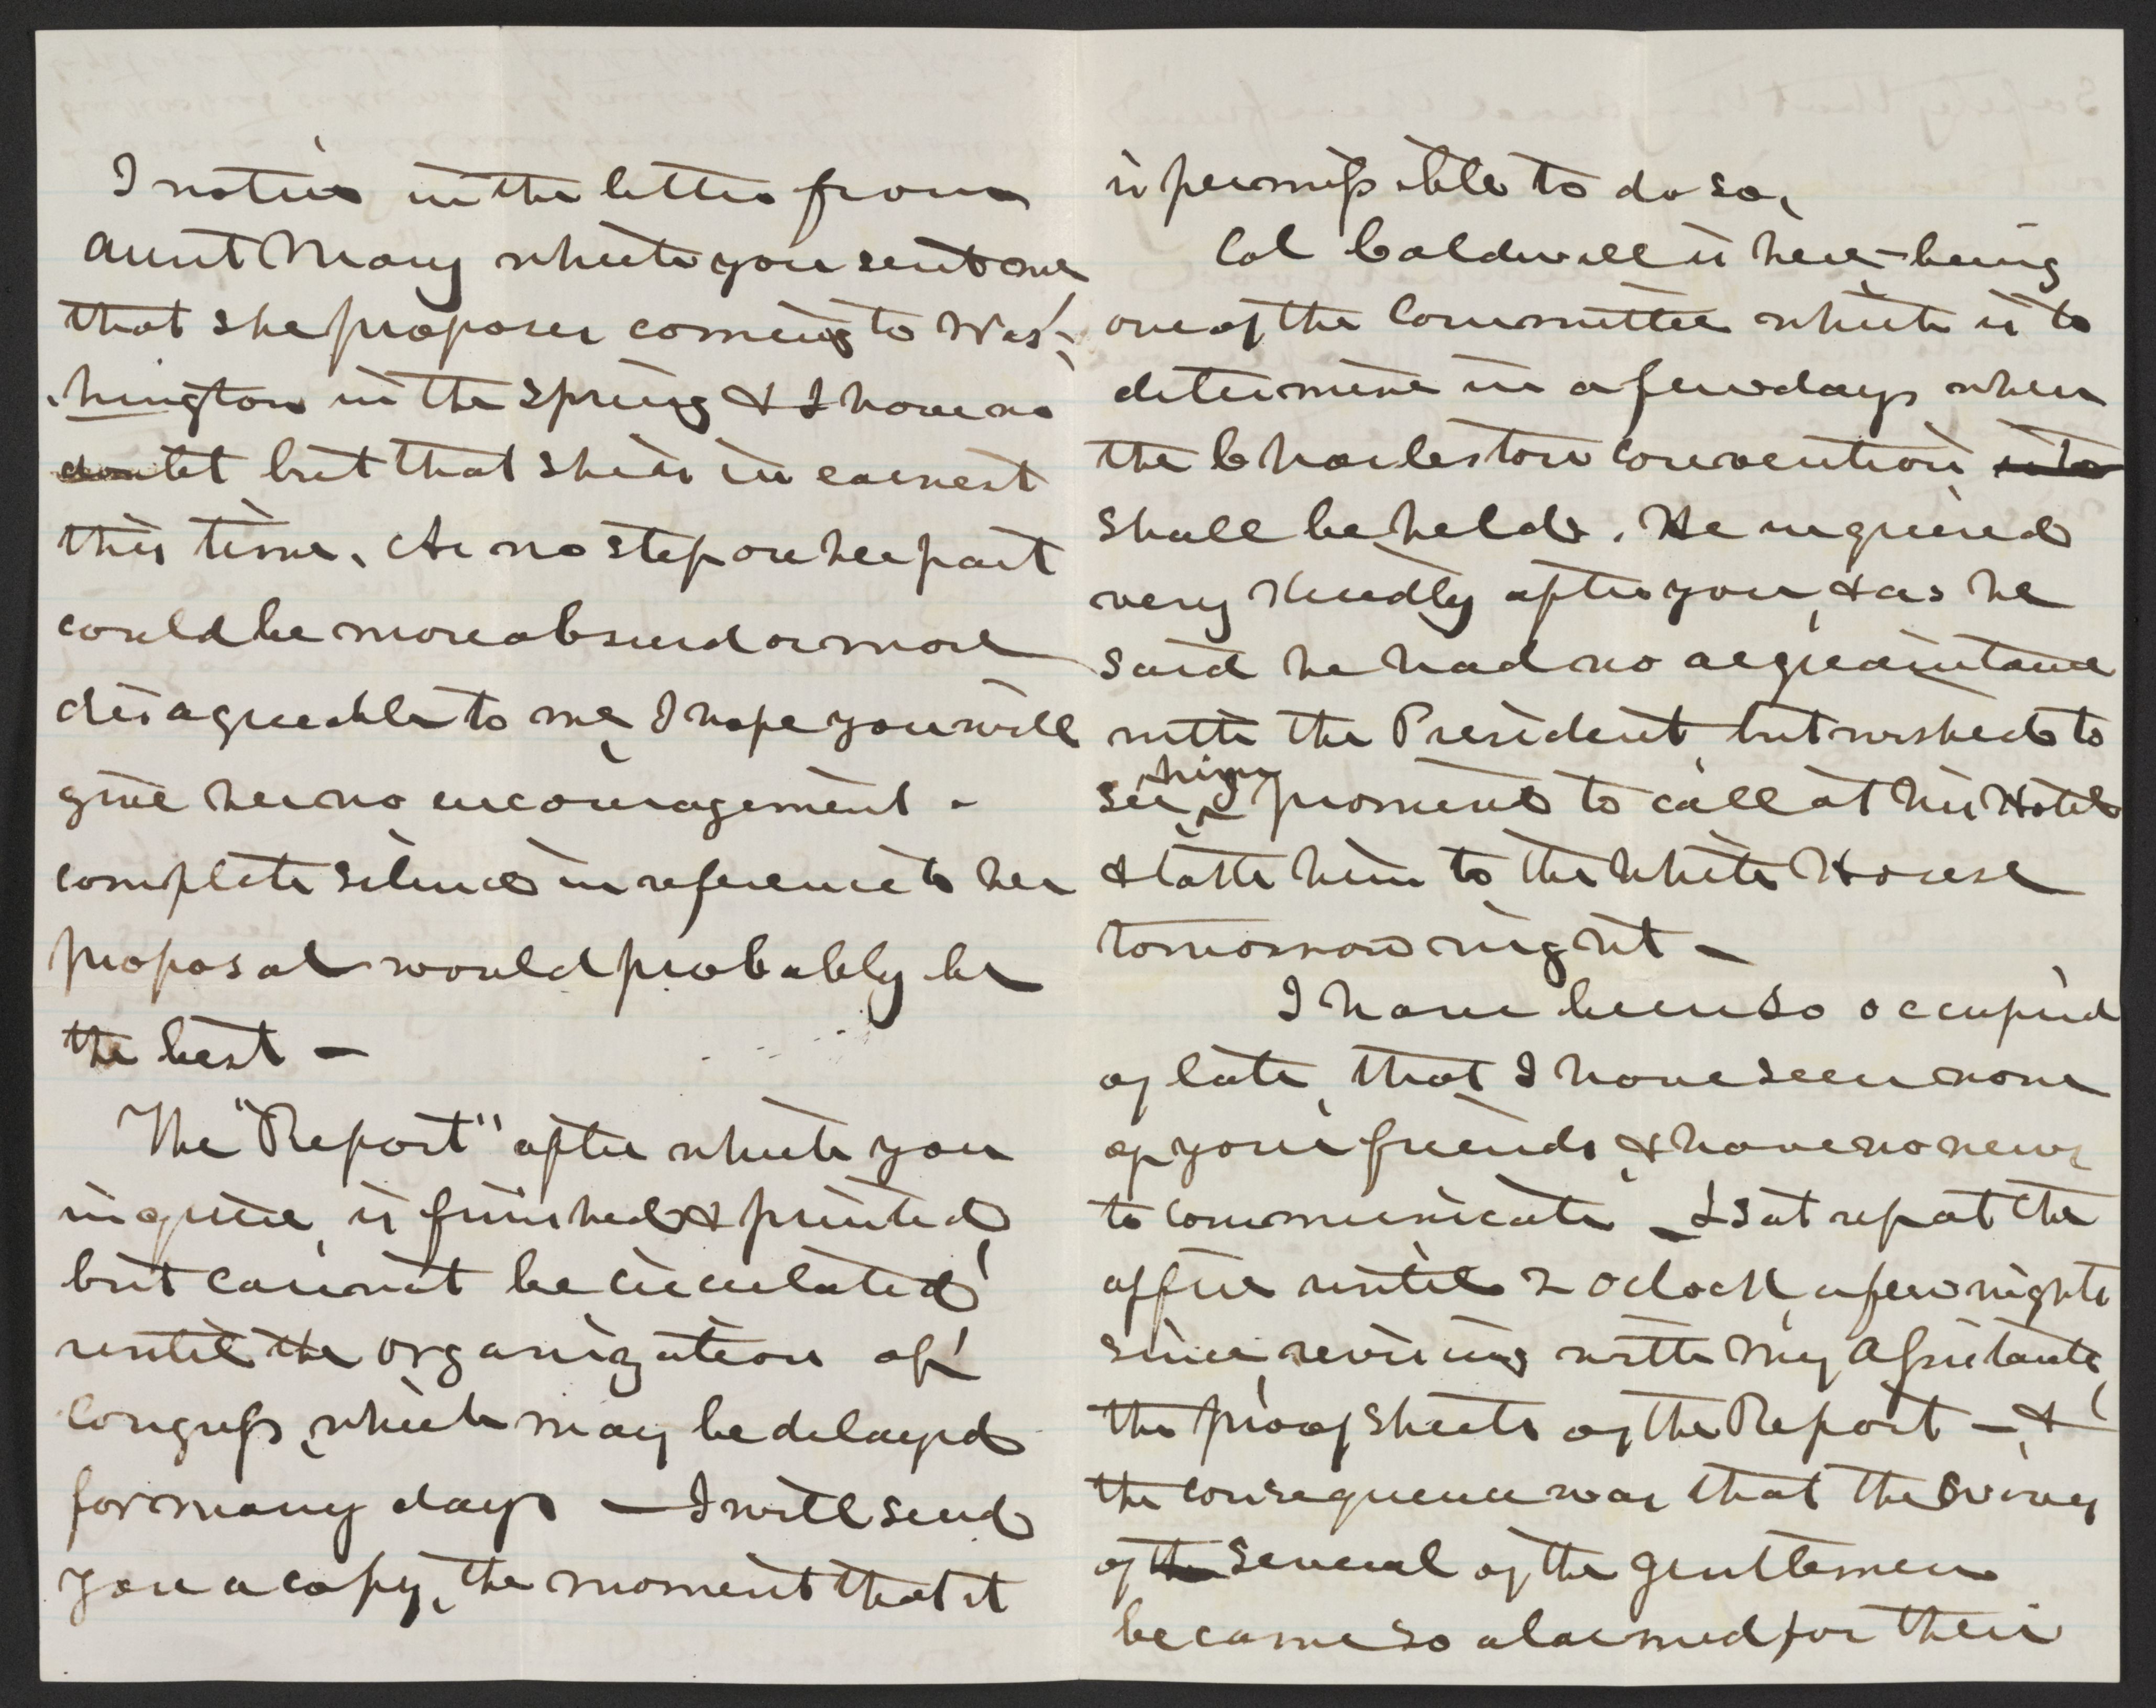 I notice in the letter from
Aunt Mary which you sent me
that she proposes coming to Was-
hington in the Spring & I have no
doubt but that she is in earnest
this time. As no step on her part
could be more absurd or more
disagreeable to me, I hope you will
give her no encouragement -
complete silence in reference to her
proposal would probably be
the best -
The "Report" after which you
inquire, is finished & printed,
but cannot be circulated
until the organization of
Congress, which may be delayed
for many days - I will send
you a copy, the moment that it
is permissible to do so.
Col Caldwell is here - being
one of the Committee which is to
determine in a few days when
the Charleston Convention is to
shall be held. He inquired
very kindly after you, & as he
said he had no acquaintance
with the President, but wished to
see him, I promised to call at his Hotel
& take him to the White House
tomorrow night -
I have been so occupied
of late, that I have seen none
of your friends & have no news
to communicate - I sat up at the
office until 2 oclock, a few nights
since, revising with my Assistants,
the proof sheets of the Report - &
the consequence was that the wives
of the several of the gentlemen
became so alarmed for their